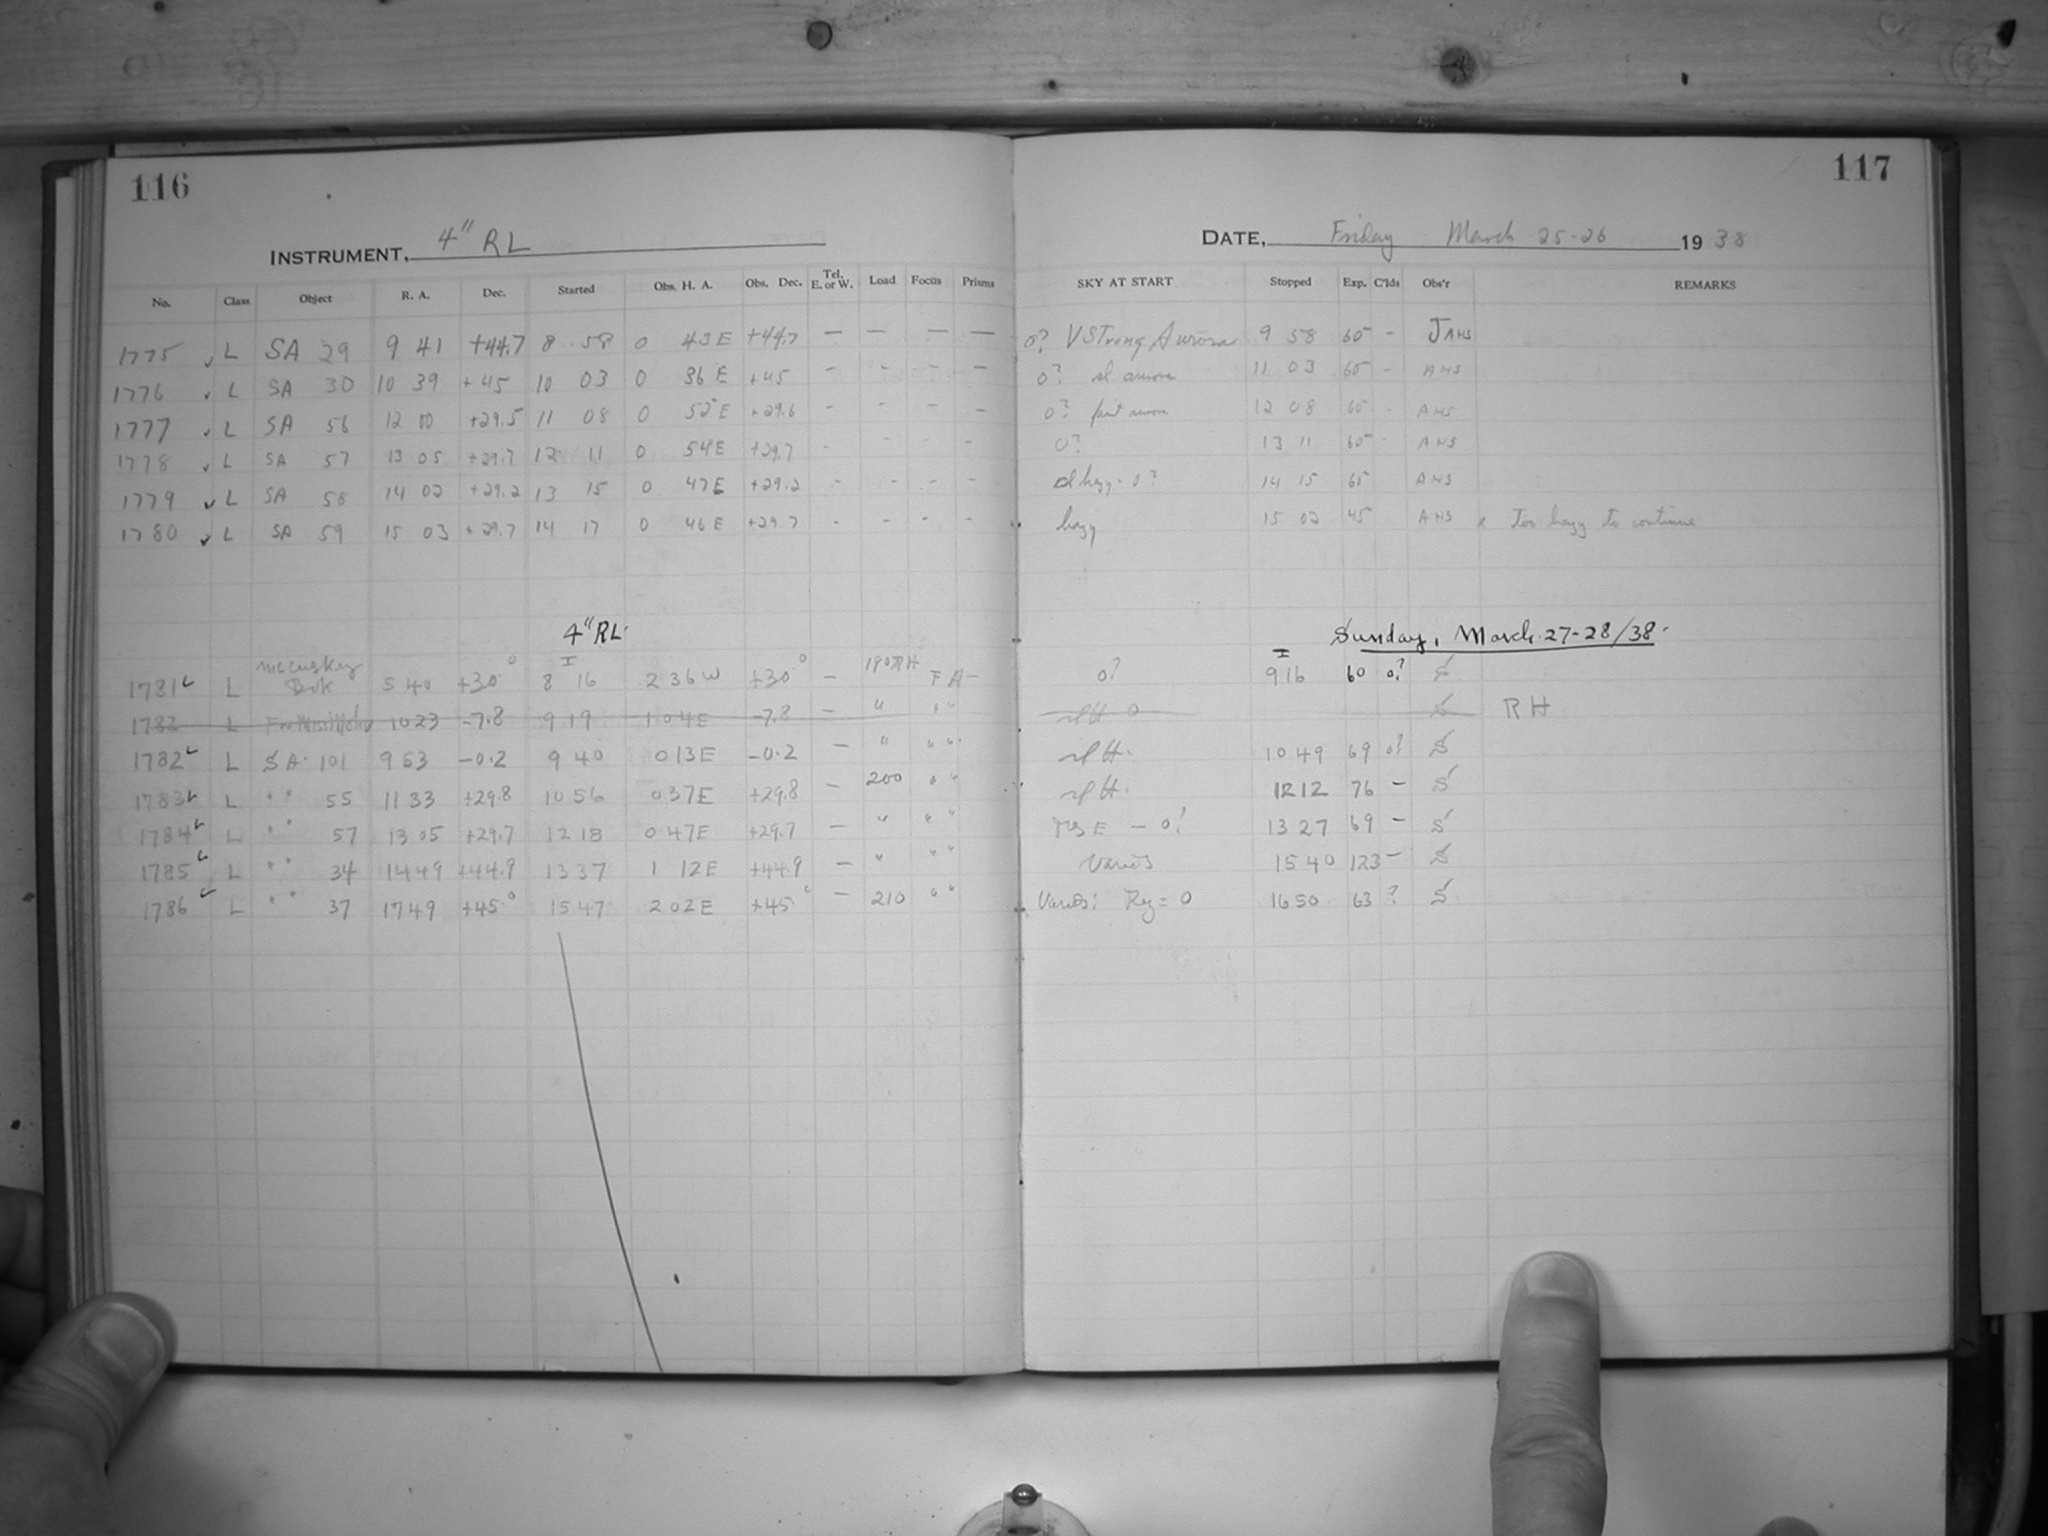 116
117
INSTRUMENT, 4" RL
DATE, Friday March 25-26 1938
No. Class Object R. A. Dec. Started Obs. H. A. Obs. Dec. Tel. E. or W. Load Focus Prisms SKY AT START Stopped Exp. C'lds Obs'r REMARKS
1775 ✓ L SA 29 9 41 +44.7 8 58 0 43 E +44.7 — — — — 0? V Strong Aurora 9 58 60 - JAHS
1776 ✓ L SA 30 10 39 +45 10 03 0 36 E +45 - - - - 0? sl aurora 11 03 60 - AHS
1777 ✓ L SA 56 12 00 +29.5 11 08 0 52 E +29.6 - - - - 0? faint auror 12 08 60 - AHS
1778 ✓ L SA 57 13 05 +29.7 12 11 0 54 E +29.7 - - - - 0? 13 11 60 - AHS
1779 ✓ L SA 58 14 02 +29.2 13 15 0 47 E +29.2 - - - - sl hazy - 0? 14 15 60 AHS
1780 ✓ L SA 59 15 03 +29.7 14 17 0 46 E +29.7 - - - - hazy 15 02 45 AHS x Too hazy to continue
4" RL.
Sunday, March 27-28/38.
McCuskey
1781 L Bok 5 40 +30° 8 16 2 36 W +30° — 190RH F A — 0? 9 16 60 0? S
1782 L 10 23 -7.8 9 19 1 04 E -7.8 — " " " sl H 0 S RH
1782 L SA. 101 9 53 -0.2 9 40 0 13 E -0.2 — " " " sl H. 10 49 69 0? S
1783 L " " 55 11 33 +29.8 10 56 0 37 E +29.8 — 200 " " sl H. 12 12 76 — S
1784 L " " 57 13 05 +29.7 12 18 0 47 E +29.7 — " " " E — 0! 13 27 69 — S
1785 L " " 34 14 49 +44.9 13 37 1 12 E +44.9 — " " " Varids 15 40 123 — S
1786 L " " 37 17 49 +45° 15 47 2 02 E +45° — 210 " " Varids: Rg = 0 16 50 63 ? S